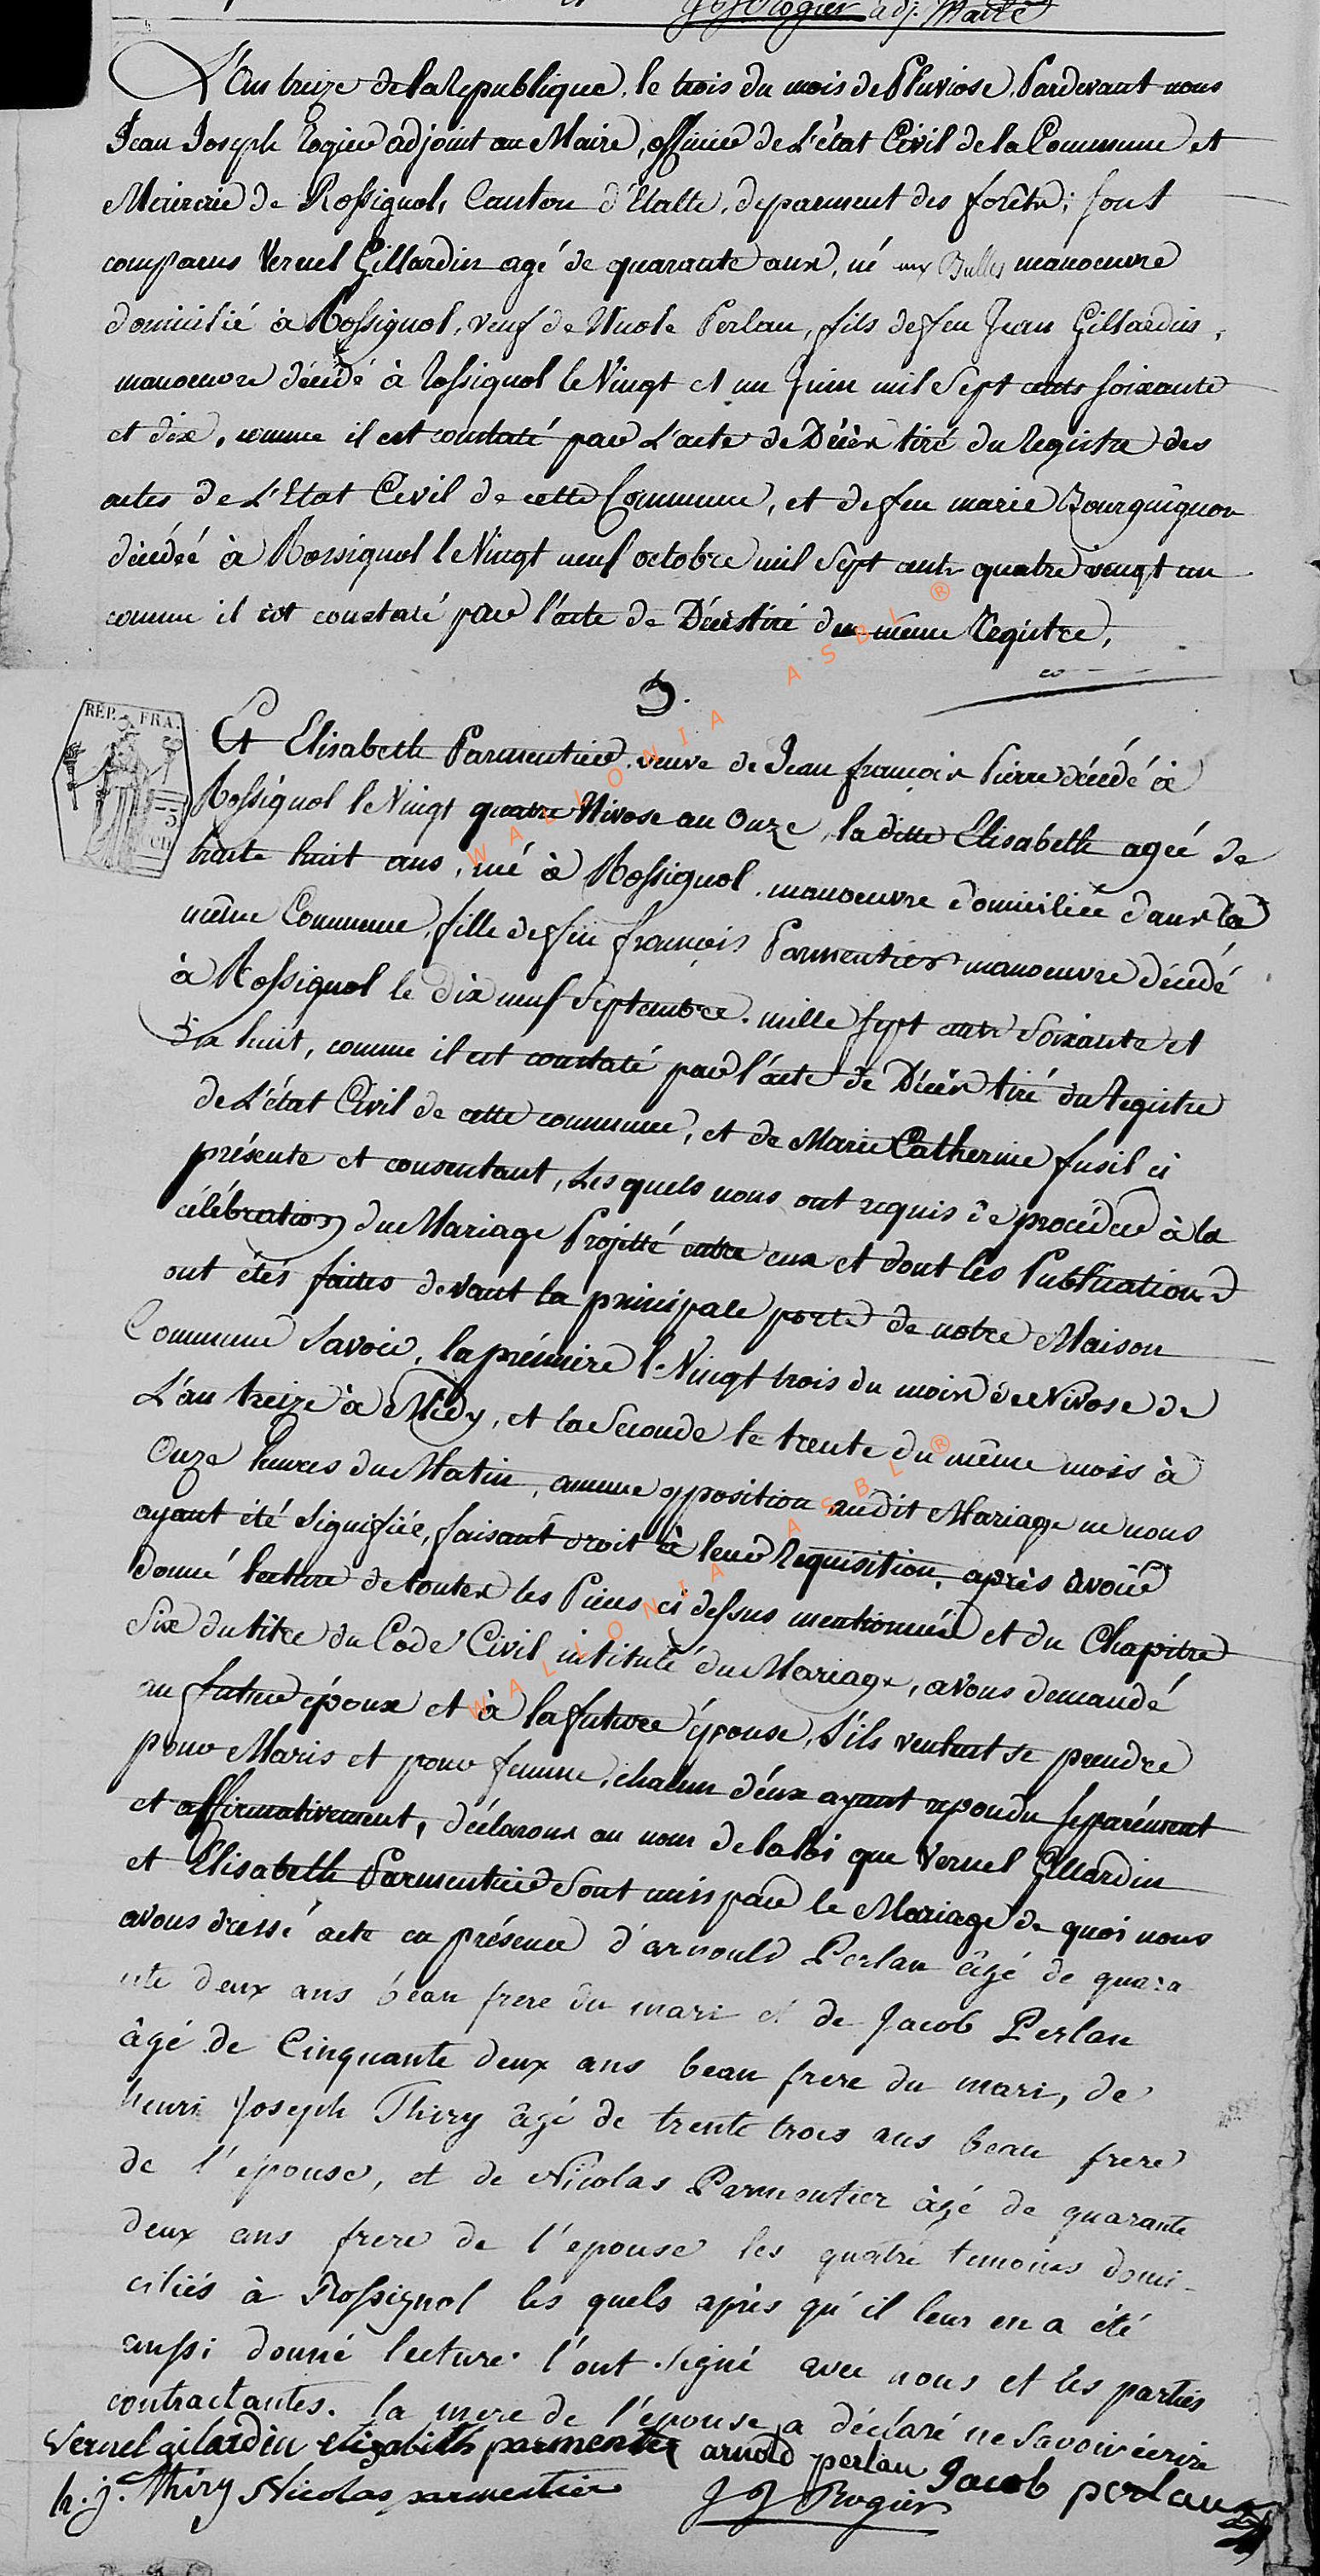 J J Rogier adj. Maire
L'An treize de la Republique, le trois du mois de Pluviose, Pardevant nous
Jean Joseph Rogier adjoint au Maire, officier de L'état Civil de la Commune et
Mairie de Rossignol, Canton d'Etalle, deparment des forêts; sont
comparus Vernel Gillardin agé de quarante ans, né aux Bulles manoeuvre
domicilié à Rossignol, veuf de Nicole Perlau, fils de feu Jean Gillardin,
manoeuvre décédé à Rossignol le Vingt et un Juin mil Sept cents soixante
et dix, comme il est constaté par L'acte de Décès tiré du Registre des
actes de L'Etat Civil de cette Commune, et de feu marie Bourguignon
décédée à Rossignol le Vingt neuf octobre mil Sept cents quatre vingt un
comme il est constaté par l'acte de Décès tiré du même Registre,
5.
REP. FRA.
Et Elisabeth Parmentier, veuve de Jean françois Pierre décédé à
Rossignol le Vingt quatre Nivose an Onze, la ditte Elisabeth agée de
trente huit ans, né à Rossignol, manoeuvre domiciliée dans la
même Commune, fille de feu françois Parmentier manoeuvre décédé
à Rossignol le dix neuf Septembre, mille sept cents Soixante et
dix huit, comme il est constaté par l'acte de Décès tiré du Registre
de L'état Civil de cette commune, et de Marie Catherine fusil ci
présente et consentant, Les quels nous ont requis de procéder à la
célébration du Mariage Projetté entre eux et dont les Publications
ont étés faites devant la principale porte de notre Maison
Commune Savoir, la prémière le Vingt trois du mois de Nivose de
L'an treize à Midy, et la Seconde le trente du même mois à
Onze heures du Matin, aucune opposition audit Mariage ne nous
ayant été Signifiée, faisant droit à leur Requisition, après avoir
donné lecture de toutes les Pieces ci dessus mentionnées et du Chapitre
Six du titre du Code Civil intitulé du Mariage, avons demandé
au futur époux et à la future épouse, S'ils veulent se prendre
pour Maris et pour femme, chacun d'eux ayant repondu separément
et affirmativement, déclarons au nom de la loi que Vernel Gillardin
et Elisabeth Parmentier Sont unis par le Mariage de quoi nous
avons dressé acte en présence d'arnould Perlau âgé de quara
nte deux ans beau frere du mari et de Jacob Perlau
âgé de Cinquante deux ans beau frere du mari, de
henri Joseph Thiry âgé de trente trois ans beau frere
de l'épouse, et de Nicolas Parmentier âgé de quarante
deux ans frere de l'epouse les quatre temoins domi-
ciliés à Rossignol les quels après qu'il leur en a été
aussi donné lecture l'ont signé avec nous et les parties
contractantes. la mere de l'épouse a déclaré ne Savoir écrire
Vernel gilardin elizabeth parmentier arnold perlau Jacob perlau
h. j. Thiry Nicolas parmentier J J Rogier
WALLONIA ASBL ®
WALLONIA ASBL ®